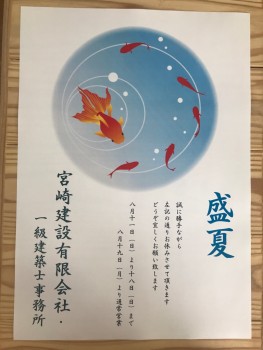 盛夏
誠に勝手ながら
左記の通りお休みさせて頂きます
どうぞ宜しくお願い致します
八月十一日（日）より十八日（日）まで
八月十九日（月）より通常営業
宮崎建設有限会社・
一級建築士事務所